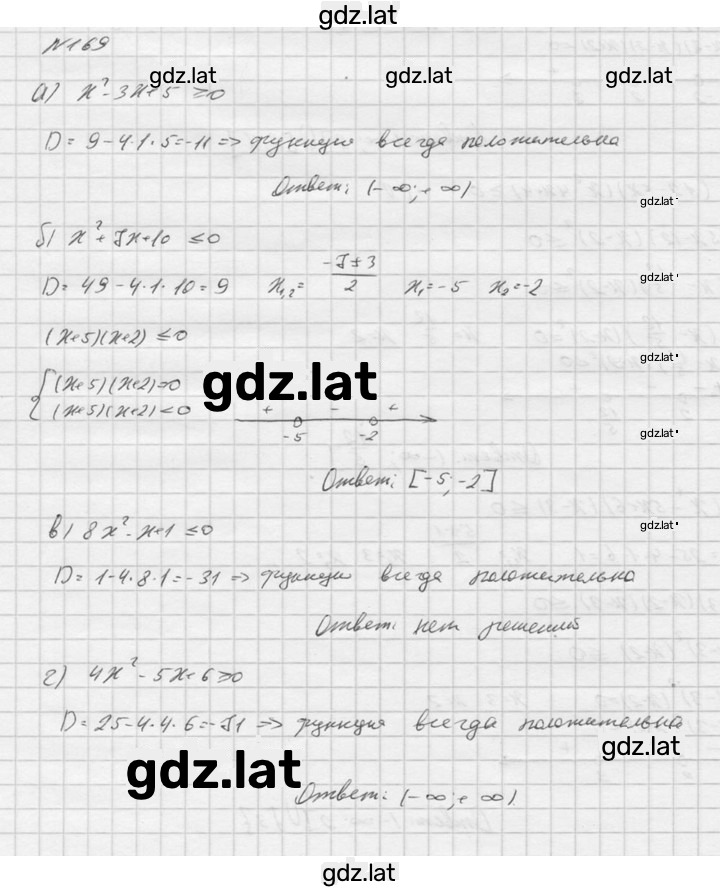 gdz.lat
№169
gdz.lat gdz.lat gdz.lat
а) x² - 3x + 5 ≥ 0
D = 9 - 4·1·5 = -11 => функция всегда положительна
Ответ: (-∞; +∞)
gdz.lat
б) x² + 7x + 10 ≤ 0
D = 49 - 4·1·10 = 9 x₁,₂ = (-7±3)/2 x₁ = -5 x₂ = -2
gdz.lat
(x+5)(x+2) ≤ 0
gdz.lat
gdz.lat
{(x+5)(x+2)=0
(x+5)(x+2)<0
+ - +
-5 -2
gdz.lat
Ответ: [-5; -2]
в) 8x² - x + 1 ≤ 0
gdz.lat
D = 1-4·8·1 = -31 => функция всегда положительна
Ответ: нет решений
г) 4x² - 5x + 6 ≥ 0
D = 25-4·4·6 = -71 => функция всегда положительна
gdz.lat
gdz.lat
Ответ: (-∞; +∞).
gdz.lat